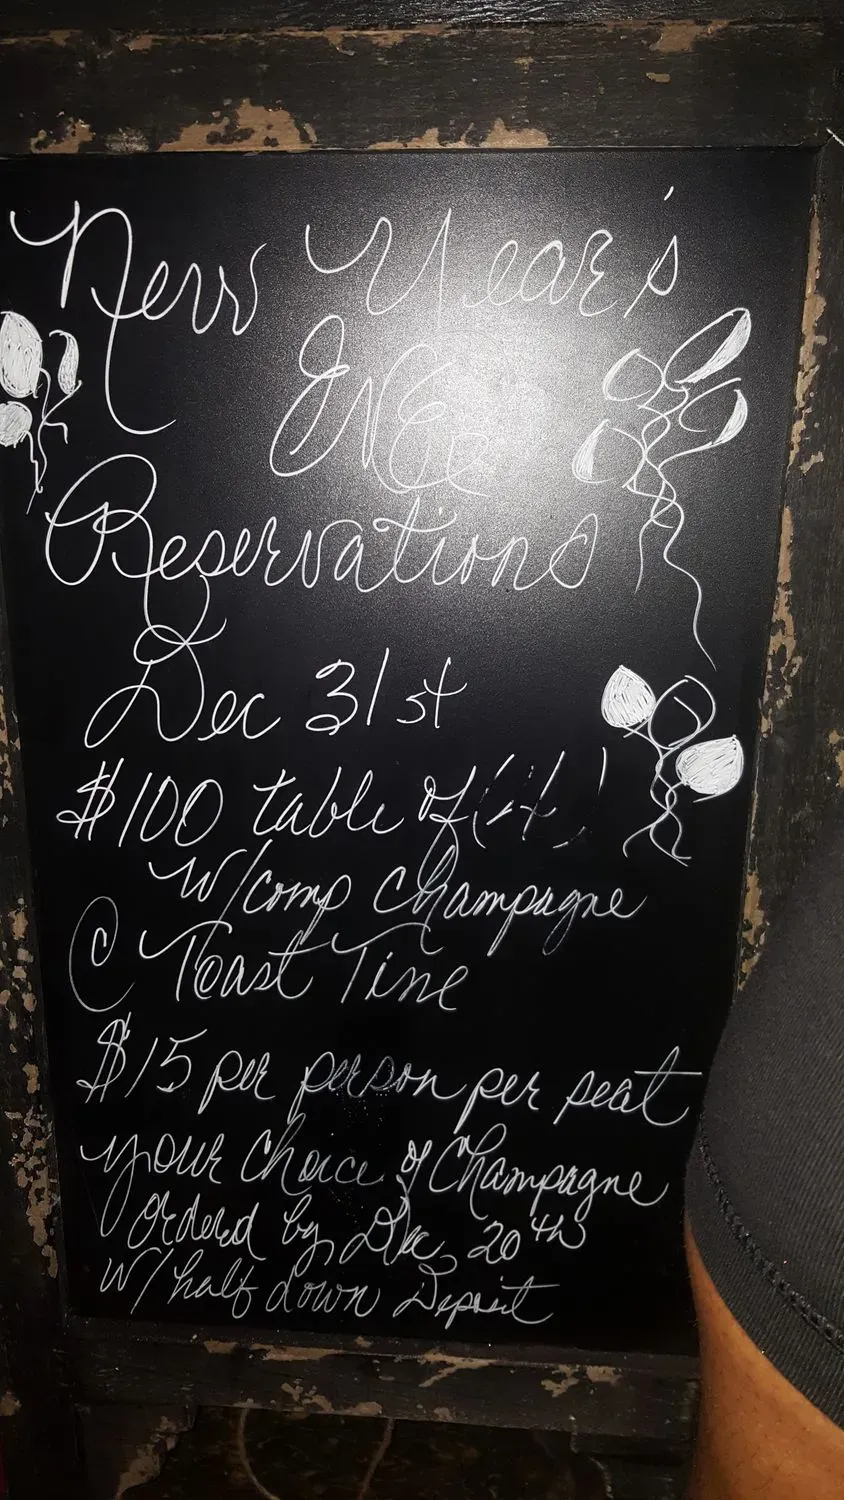 New Year's
Eve
Reservations
Dec 31st
$100 table of (4)
w/comp champagne
@ Toast Time
$15 per person per seat
your choice of Champagne
ordered by Dec, 20th
w/ half down Deposit